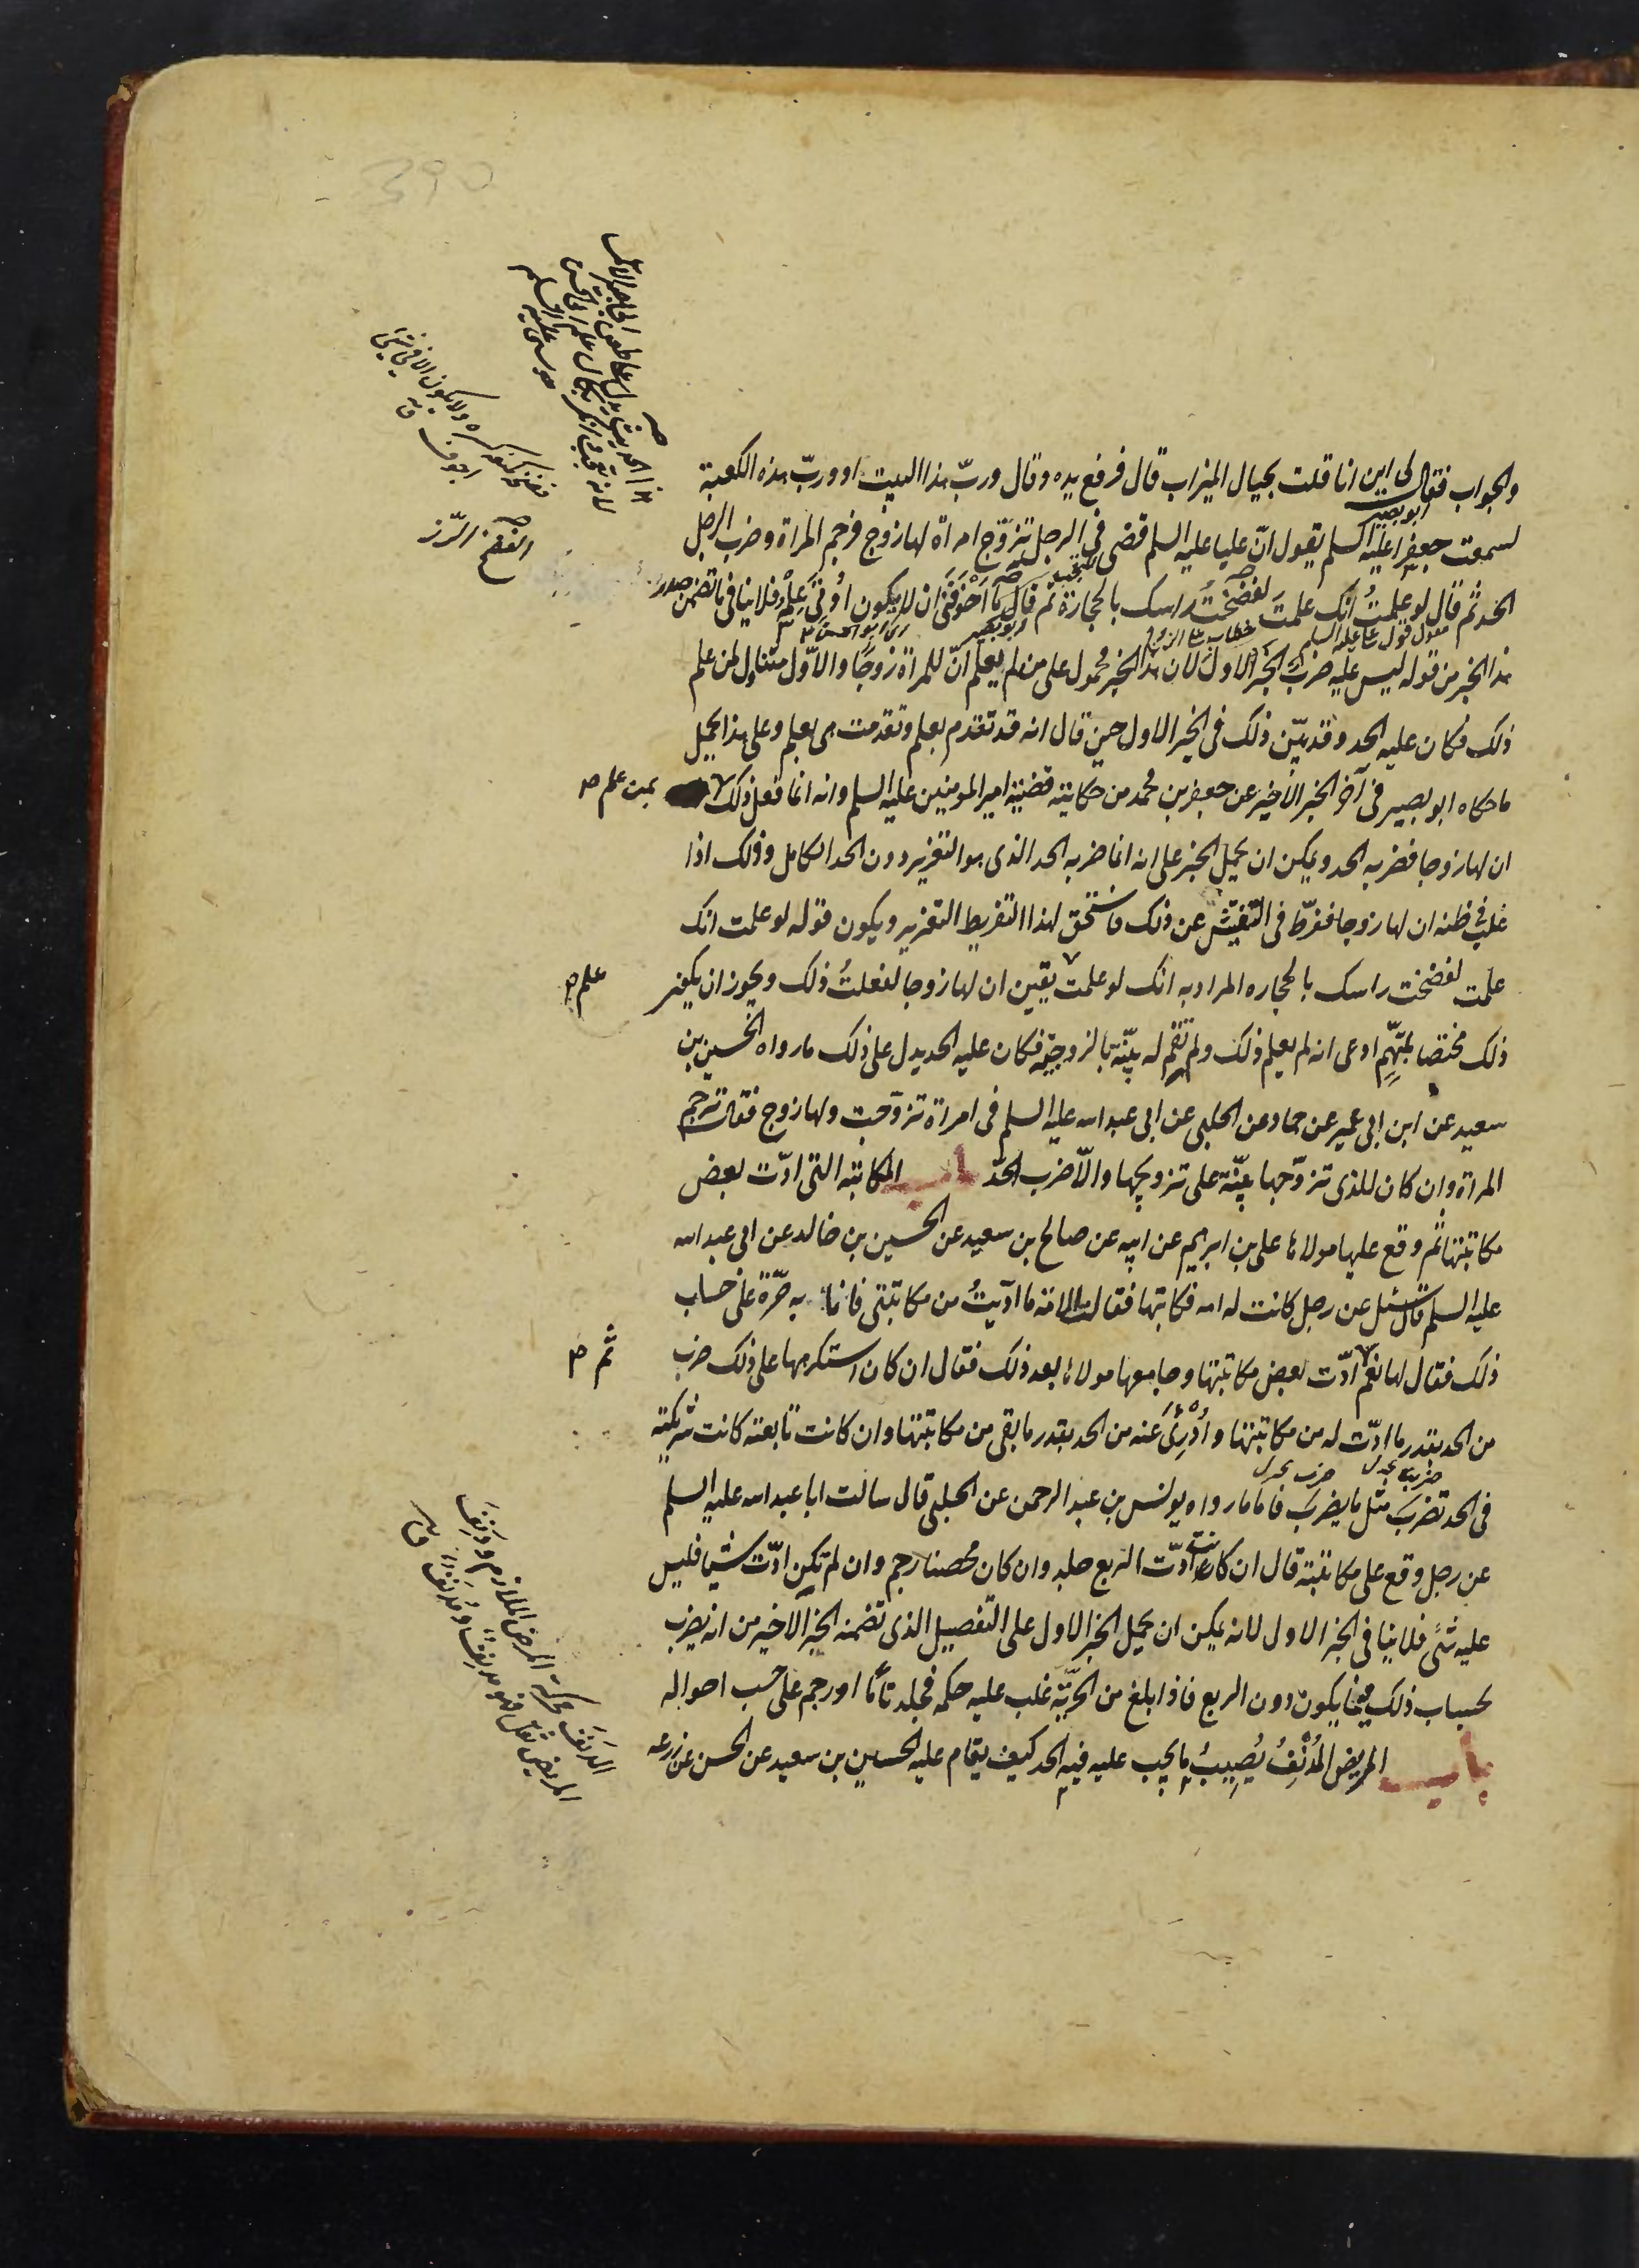 والجواب فقال لی این انا قلت بحیال المیزاب قال فرفع یده وقال وربّ هذا البیت او وربّ هذه الکعبة
لسمعت جعفرا علیه السلم یقول انّ علیا علیه السلم قضی فی الرجل تزوّج امراة لها زوج فرجم المراة وضرب الرجل
ابو بصیر
الحد ثم قال لو علمتُ انک علمتَ لفضختُ راسک بالحجارة ثم قال ما اَخْوَفَنی ان لا یکون اُوتیَ عِلمُهُ فلا ینافی ما تضمن صدر
هذا الخبر من قوله لیس علیه ضرب الخبر الاول لان هذا الخبر محمول علی من لم یعلم انّ للمراة زوجًا والاوّل متناول لمن علم
ذلک فکان علیه الحد وقد بیّن ذلک فی الخبر الاول حین قال انه قد تقدم بعلم وتقدمت هی بعلم وعلی هذا یحمل
ما حکاه ابو بصیر فی آخر الخبر الاخیر عن جعفر بن محمد من حکایته قضیة امیر المومنین علیه السلم وانه انما فعل ذلک
بمن علم صح
ان لها زوجا فضربه الحد ویمکن ان یحمل الخبر علی انه انما ضربه الحد الذی هو التعزیر دون الحد الکامل وذلک اذا
غلب فی ظنه ان لها زوجا ففرّط فی التفتیش عن ذلک فاستحق لهذا التفریط التعزیر ویکون قوله لو علمت انک
علمت لفضخت راسک بالحجاره المراد به انک لو علمت یقین ان لها زوجا لفعلتُ ذلک ویجوز ان یکون
علم صح
ذلک مختصا بمتّهم ادعی انه لم یعلم ذلک ولم تقم له بیّنة بالزوجیّة فکان علیه الحد یدل علی ذلک ما رواه الحسین بن
سعید عن ابن ابی عمیر عن حماد عن الحلبی عن ابی عبد الله علیه السلم فی امراة تزوّجت ولها زوج فقال ترجم
المراة وان کان للذی تزوّجها بیّنة علی تزویجها والّا ضرب الحدّ باب المکاتبه التی ادّت بعض
مکاتبتها ثم وقع علیها مولاها علی بن ابرهیم عن ابیه عن صالح بن سعید عن الحسین بن خالد عن ابی عبد الله
علیه السلم قال سئل عن رجل کانت له امه فکاتبها فقالت الامة ما ادّیتُ من مکاتبتی فانا به حرّة علی حساب
ذلک فقال لها نعم ادّت بعض مکاتبتها وجامعها مولاها بعد ذلک فقال ان کان استکرهها علی ذلک ضرب
ثم صح
من الحد بقدر ما ادّت له من مکاتبتها واُدْرِئَ عنه من الحد بقدر ما بقی من مکاتبتها وان کانت تابعته کانت شریکته
فی الحد تضرب مثل ما یضرب فاما ما رواه یونس بن عبد الرحمن عن الحلبی قال سالت ابا عبد الله علیه السلم
عن رجل وقع علی مکاتبته قال ان کانت ادّت الربع جلد وان کان محصنا رجم وان لم تکن ادّت شیا فلیس
علیه شئ فلا ینافی الخبر الاول لانه یمکن ان یحمل الخبر الاول علی التفصیل الذی تضمنه الخبر الاخیر من انه یضرب
بحساب ذلک فیما یکون دون الربع فاذا بلغ من الحرّیّة غلب علیه حکمه فجلد تامًا او رجم علی حسب احواله
باب المریض المُدْنِفُ یُصِیبُ ما یجب علیه فیه الحد کیف یقام علیه الحسین بن سعید عن الحسن عن زرعه